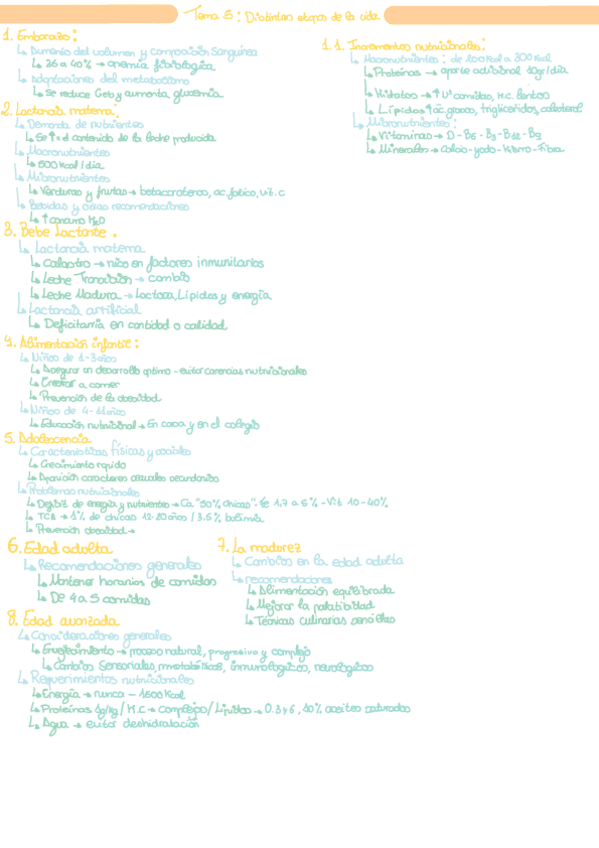 Tema 5: Distintas etapas de la vida
1. Embarazo:
↳ Aumento del volumen y composición Sanguínea
↳ 26 a 40% → anemia fisiológica
↳ Adaptaciones del metabolismo
↳ Se reduce Geb y aumenta glucemia
1.1. Incrementos nutricionales:
↳ Macronutrientes: de 200 Kcal a 300 Kcal
↳ Proteínas → aporte adicional 10gr/día
↳ Hidratos → ↑ Nº comidas, H.C. lentos
↳ Lípidos ↑ ac. grasos, triglicéridos, colesterol
↳ Micronutrientes:
↳ Vitaminas → D - B6 - B3 - B12 - B2
↳ Minerales → Calcio - yodo - Hierro - Fibra
2. Lactancia materna:
↳ Demanda de nutrientes
↳ Se ↑ x el contenido de la leche producida
↳ Macronutrientes
↳ 500 Kcal/dia
↳ Micronutrientes
↳ Verduras y frutas → betacarotenos, ac. fólico, vit. c
↳ Bebidas y otras recomendaciones
↳ ↑ consumo H2O
3. Bebe Lactante.
↳ Lactancia materna
↳ Calostro → rico en factores inmunitarios
↳ Leche Transición → cambio
↳ Leche Madura → Lactosa, Lípidos y energía
↳ Lactancia artificial
↳ Deficitaria en cantidad o calidad
4. Alimentación infantil:
↳ Niños de 1-3 años
↳ Asegurar un desarrollo optimo - evitar carencias nutricionales
↳ Enseñar a comer
↳ Prevención de la obesidad
↳ Niños de 4-11 años
↳ Educación nutricional → En casa y en el colegio
5. Adolescencia
↳ Caracteristicas físicas y sociales
↳ Crecimiento rapido
↳ Aparición caracteres sexuales secundarios
↳ Problemas nutricionales
↳ Deficit de energía y nutrientes → Ca "50% chicas" - Fe 1,7 a 5% - Vit 10-40%
↳ TCA → 1% de chicas 12-20 años / 3.5% bulimia
↳ Prevención obesidad →
6. Edad adulta
↳ Recomendaciones generales
↳ Mantener horarios de comidas
↳ De 4 a 5 comidas
7. La madurez
↳ Cambios en la edad adulta
↳ recomendaciones
↳ Alimentación equilibrada
↳ Mejorar la palatibidad
↳ Técnicas culinarias sencillas
8. Edad avanzada
↳ Consideraciones generales
↳ Envejecimiento → proceso natural, progresivo y complejo
↳ Cambios Sensoriales, metabólicos, inmunologicos, neurologicos
↳ Requerimientos nutricionales
↳ Energía → nunca - 1500 Kcal
↳ Proteínas 1g/kg / H.C → complejos / Lípidos → 0.3 y 6, 10% aceites saturados
↳ Agua → evitar deshidratación